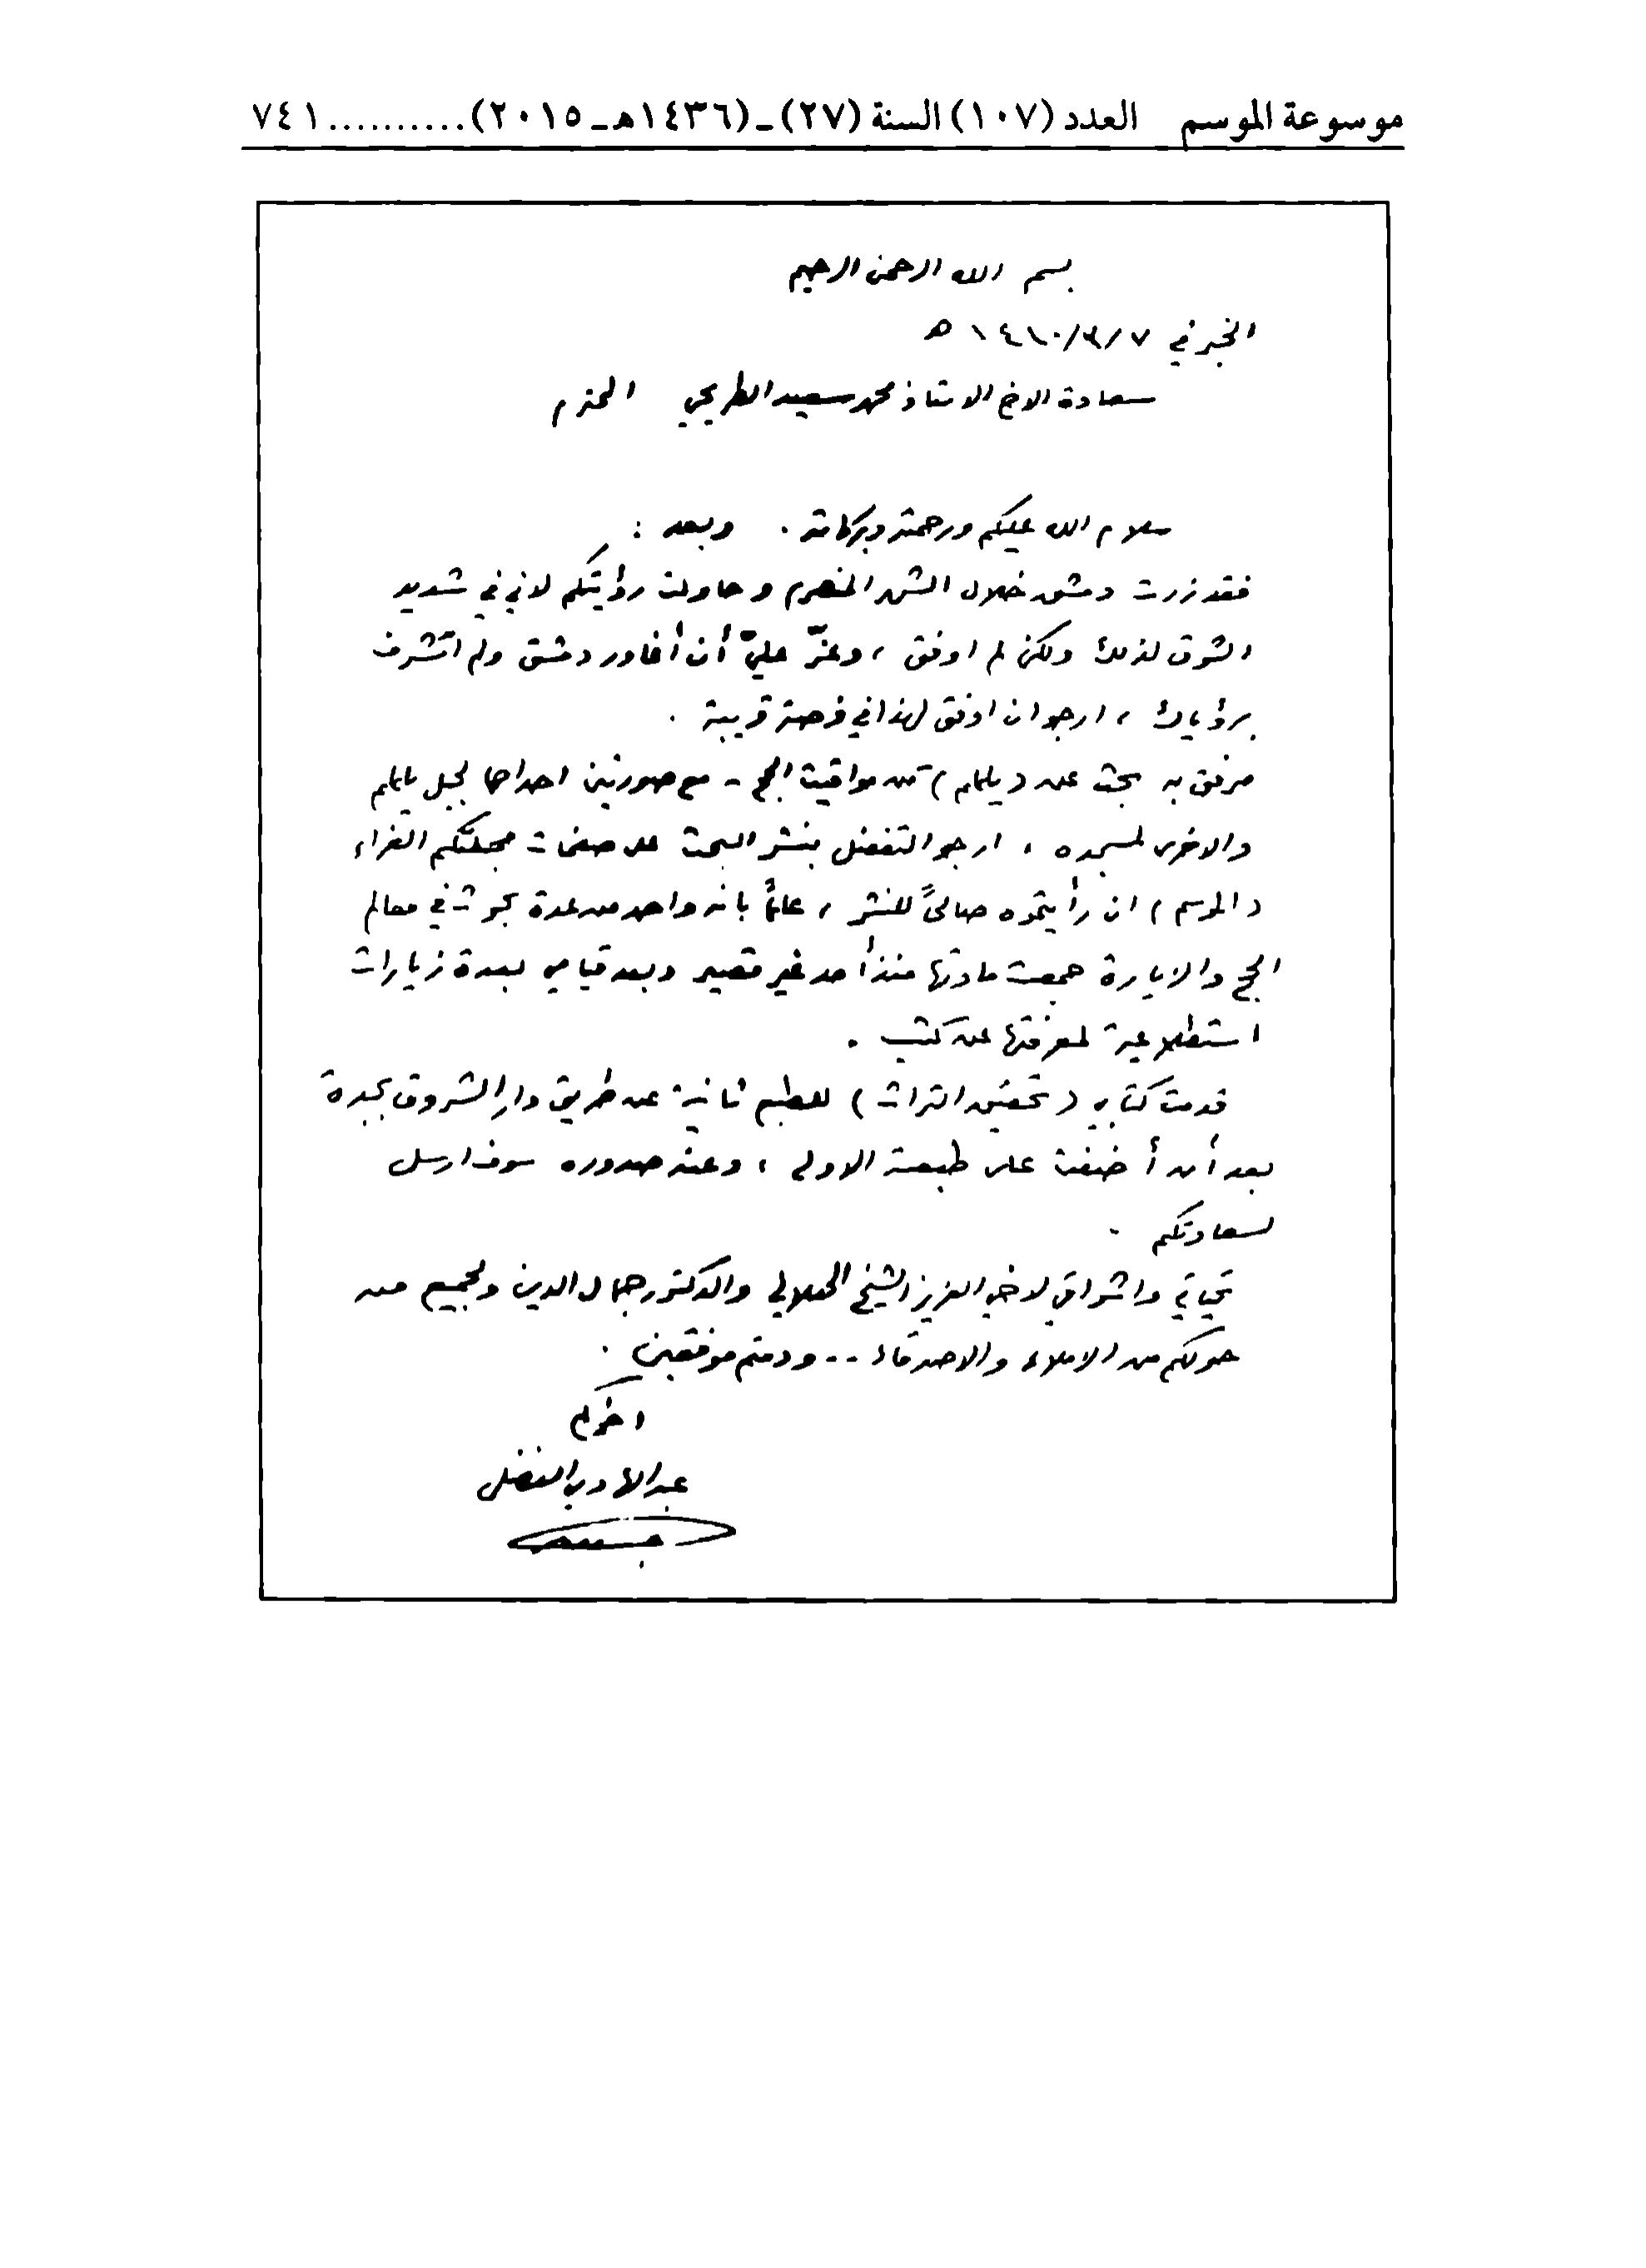 موسوعة الموسم العدد (١٠٧) السنة (٢٧) ـ (١٤٣٦هـ ـ ٢٠١٥) .......... ٧٤١
بسم الله الرحمن الرحيم
الخبر في ٧/٣/١٤١٠ هـ
سعادة الاخ الاستاذ محمد سعيد الطريحي المحترم
سلام الله عليكم ورحمته وبركاته . وبعد :
فقد زرت دمشق خلال الشهر المنصرم وحاولت رؤيتكم لانني في شديد
الشوق لذلك ولكن لم اوفق ، وعزّ عليّ أن أغادر دمشق ولم اتشرف
برؤياك ، ارجو ان اوفق لهذا في فرصة قريبة .
مرفق به بحث عن (يلملم) من مواقيت الحج - مع صورتين احداهما لجبل يلملم
والاخرى لمسجده ، ارجو التفضل بنشر البحث على صفحات مجلتكم الغراء
(الموسم) ان رأيتموه صالحاً للنشر ، علماً بانه واحد من عدة بحوث في معالم
الحج والزيارة جمعت مادتها منذ أمد غير قصير وبعد قيامي بعدة زيارات
استطلاعية لمعرفتها عن كثب .
قدمت كتابي (تحقيق التراث) للطبع ثانية عن طريق دار الشروق بجدة
بعد أن أضفت على طبعته الاولى ، وعند صدوره سوف ارسل
لسعادتكم .
تحياتي واشواقي لاخي العزيز الشيخ الهلالي والدكتور جمال الدين ولجميع من
حولكم من الاخلاء والاصدقاء .. ودمتم موفقين .
اخوكم
عبدالهادي الفضلي